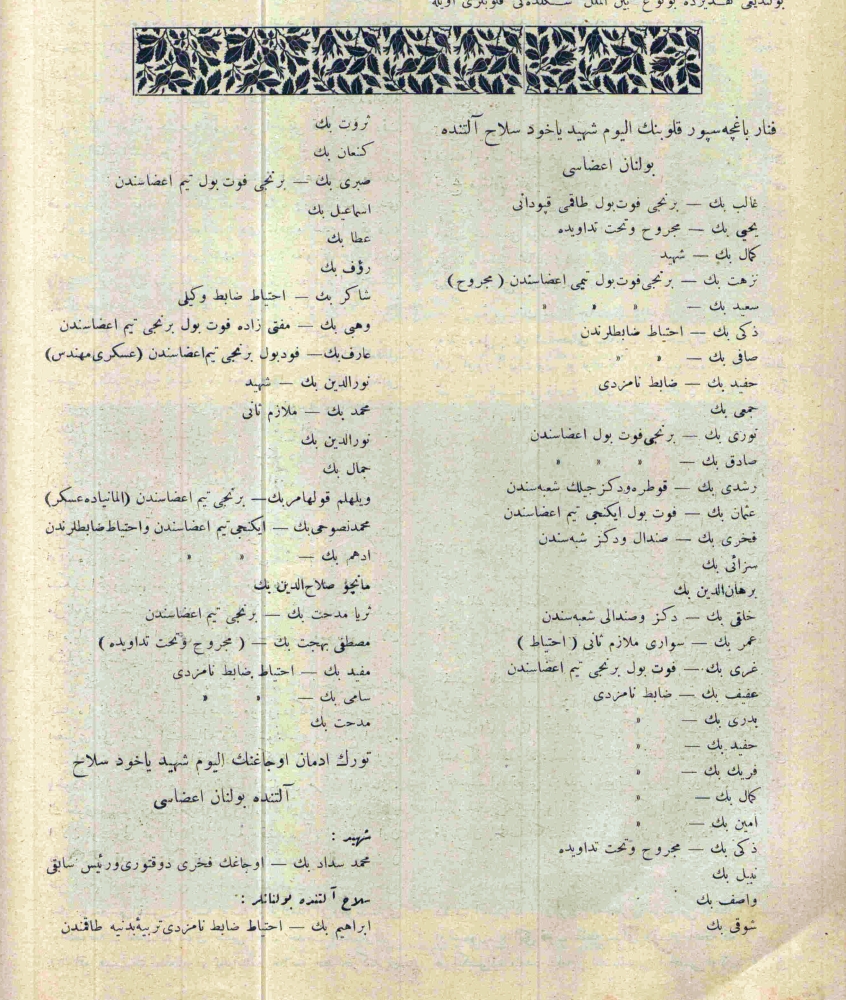 فنار باغچه‌سپور قلوبنك اليوم شهيد ياخود سلاح آلتنده
بولنان اعضاسی
غالب بك — برنجی فوت‌بول طاقمی قپودانی
يحيی بك — مجروح وتحت تداويده
كمال بك — شهيد
نزهت بك — برنجی‌فوت‌بول تيمی اعضاسندن ( مجروح )
سعيد بك — » » »
ذكی بك — احتياط ضابطلرندن
صافی بك — » »
حفيد بك — ضابط نامزدی
جمعی بك
نوری بك — برنجی‌فوت بول اعضاسندن
صادق بك — » » »
رشدی بك — قوطره‌ودكزجيلك شعبه‌سندن
عثمان بك — فوت بول ايكنجی تيم اعضاسندن
فخری بك — صندال ودكز شبه‌سندن
سزائی بك
برهان‌الدين بك
خلقی بك — دكز وصندالی شعبه‌سندن
عمر بك — سواری ملازم ثانی ( احتياط )
غری بك — فوت بول برنجی تيم اعضاسندن
عفيف بك — ضابط نامزدی
بدری بك — »
حفيد بك — »
فريك بك — »
كمال بك — »
امين بك — »
ذكی بك — مجروح وتحت تداويده
نبيل بك
واصف بك
شوقی بك
ثروت بك
كنعان بك
صبری بك — برنجی فوت بول تيم اعضاسندن
اسماعيل بك
عطا بك
رؤف بك
شاكر بك — احتياط ضابط وكيلی
وهبی بك — مفتی زاده فوت بول برنجی تيم اعضاسندن
عارف‌بك— فودبول برنجی تيم‌اعضاسندن (عسكری‌مهندس)
نورالدين بك — شهيد
محمد بك — ملازم ثانی
نورالدين بك
جمال بك
ويلهلم قولهامربك— برنجی تيم اعضاسندن (المانياده‌عسكر)
محمدنصوحی‌بك — ايكنجی‌تيم اعضاسندن واحتياط‌ضابطلرندن
ادهم بك — » »
مانچو صلاح‌الدين بك
ثريا مدحت بك — برنجی تيم اعضاسندن
مصطفی بهجت بك — ( مجروح وتحت تداويده )
مفيد بك — احتياط ضابط نامزدی
سامی بك — » »
مدحت بك
تورك ادمان اوجاغنك اليوم شهيد ياخود سلاح
آلتنده بولنان اعضاسی
شهيد :
محمد سداد بك — اوجاغك فخری دوقتوری‌ورئيس سابقی
سلاح آلتنده بولنانلر :
ابراهيم بك — احتياط ضابط نامزدی‌تربيۀبدنيه طاقمندن